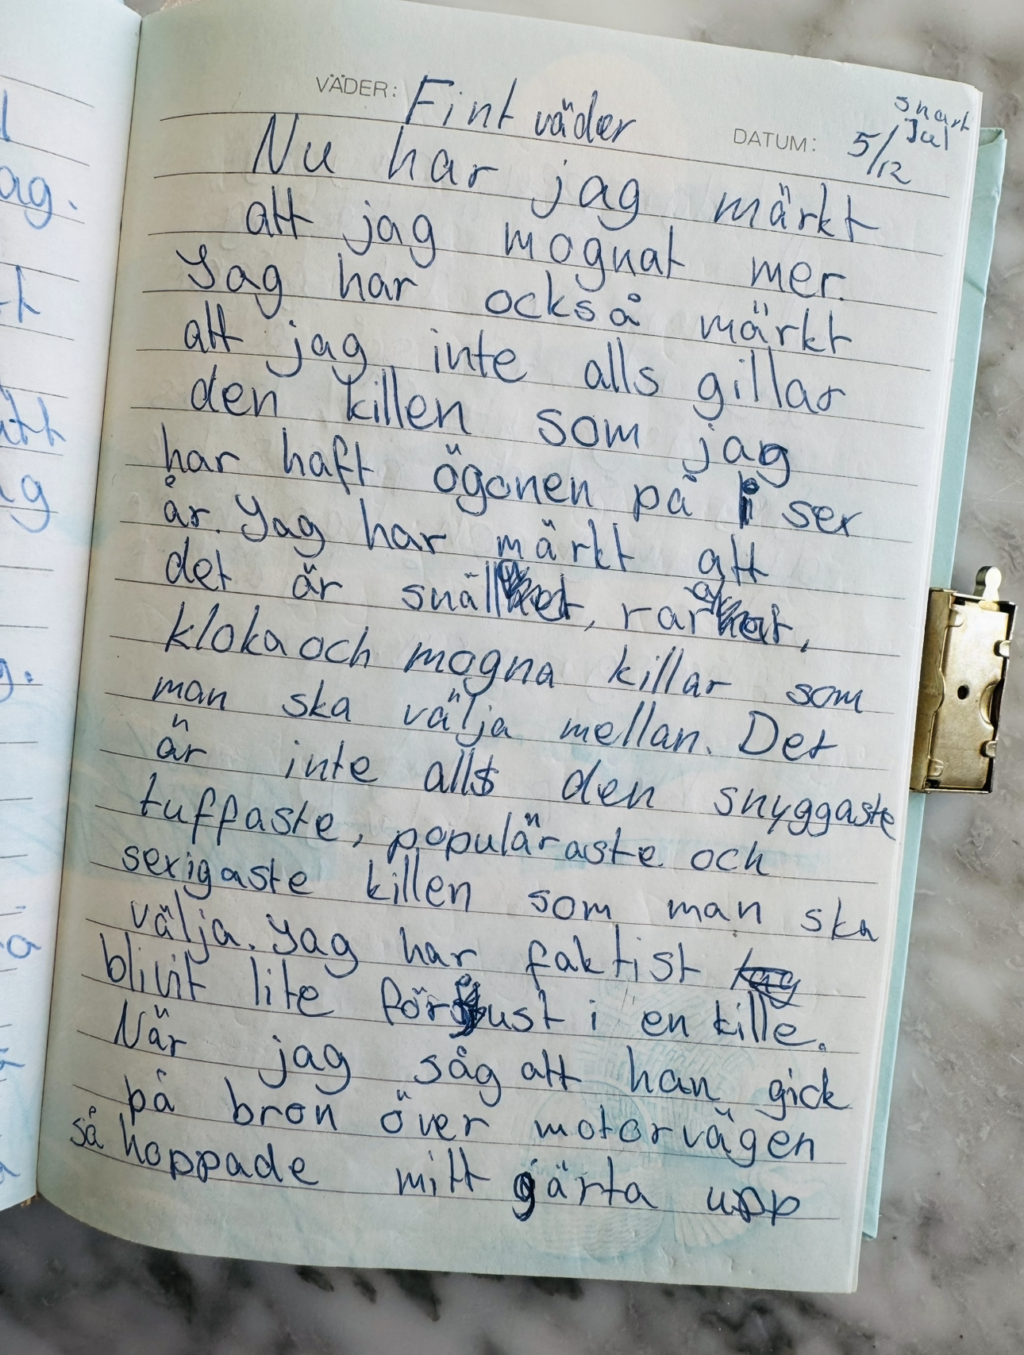 VÄDER: Fint väder DATUM: 5/12 snart Jul
Nu har jag märkt
att jag mognat mer.
Jag har också märkt
att jag inte alls gillar
den killen som jag
har haft ögonen på i sex
år. Jag har märkt att
det är snäll, rar,
kloka och mogna killar som
man ska välja mellan. Det
är inte alls den snyggaste
tuffaste, populäraste och
sexigaste killen som man ska
välja. Jag har faktist jag
blivit lite förtjust i en kille.
När jag såg att han gick
på bron över motorvägen
så hoppade mitt gärta upp